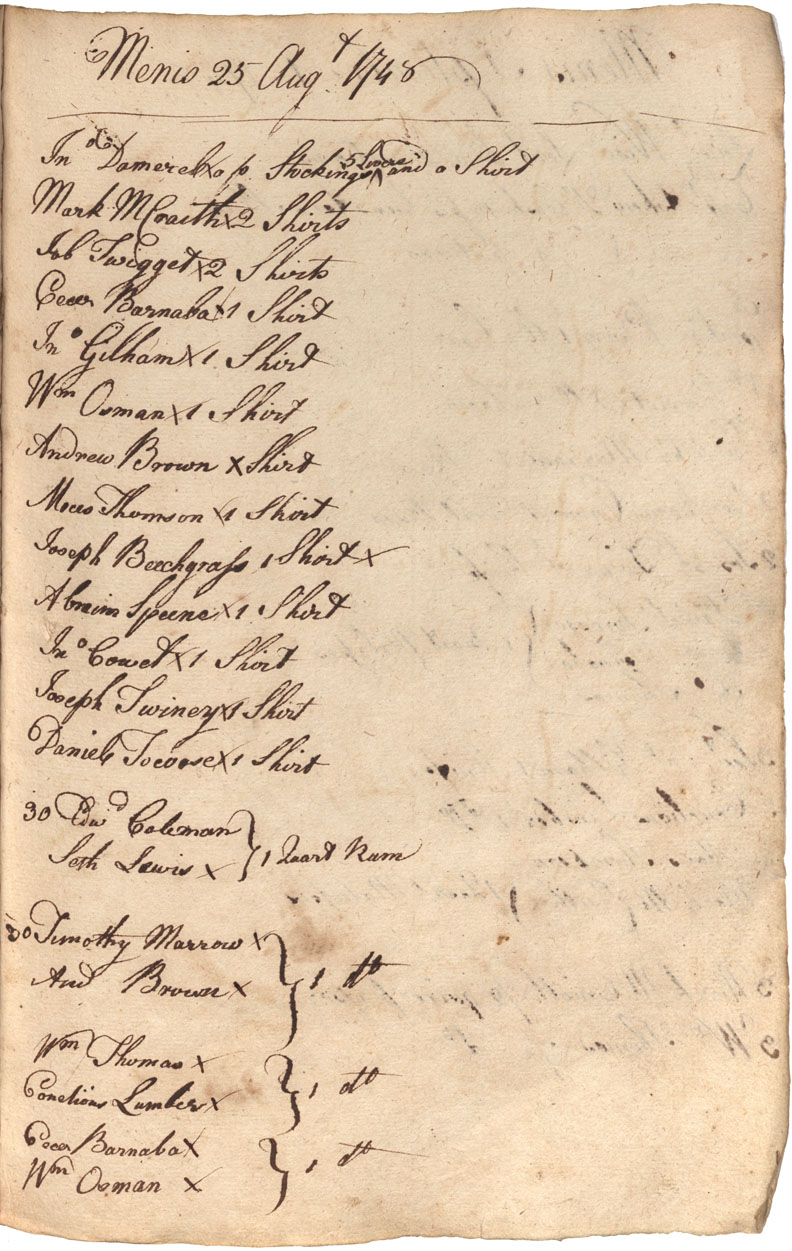 Menis 25 Augt 1748
Jno Damerel x a p. Stockings 5 Livers and a Shirt
Mark McCraith x 2 Shirts
Job Twigget x 2 Shirts
Barnaba x 1 Shirt
Jno Gilham x 1 Shirt
Wm Osman x 1 Shirt
Andrew Brown x Shirt
Moses Thomson x 1 Shirt
Joseph Beechgrass 1 Shirt x
Abraim Speene x 1 Shirt
Jno Cowet x 1 Shirt
Joseph Twiney x 1 Shirt
Daniel Tocose x 1 Shirt
30 Edwd Coleman
Seth Lewis x } 1 Quart Rum
30 Timothy Marrow x
And Brown x } 1 do
Wm Thomas x
Conelious Lumber x } 1 do
Barnaba x
Wm Osman x } 1 do